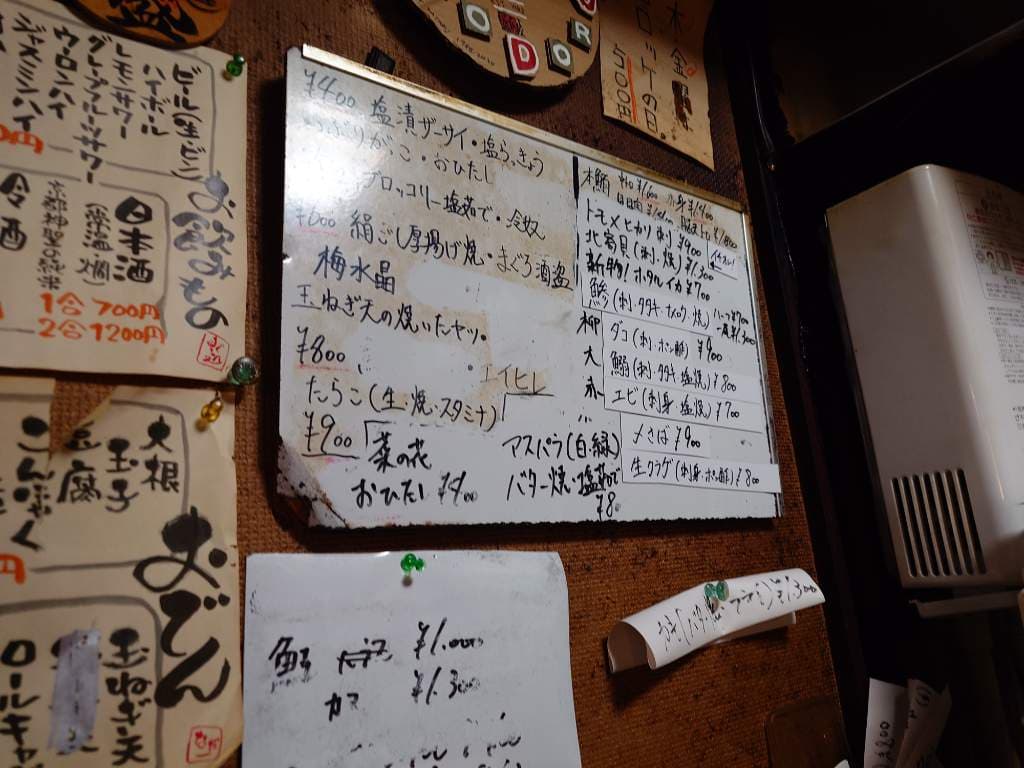 お飲みもの
ビール(生・ビン)
ハイボール
レモンサワー
グレープルーツサワー
ウーロンハイ
ジャスミンハイ
日本酒
(常温・燗)
1合 700円
2合 1200円
冷酒
おでん
大根
玉子
豆腐
こんにゃく
玉ねぎ天
ロールキャ
木金
コロッケの日。
500円
¥400 塩漬ザーサイ・塩らっきょう
いぶりがっこ・おひたし
ブロッコリー塩茹で・冷奴
¥600 絹ごし厚揚げ焼・まぐろ酒盗
梅水晶
玉ねぎ天の焼いたヤツ。
¥800
エイヒレ
たらこ(生・焼・スタミナ)
¥900
菜の花
おひたし
アスパラ(白・緑)
バター焼・塩茹で
¥80
本鮪
トモメヒカリ(刺) ¥900
北寄貝(刺・焼) ¥1,300
新物!ホタルイカ ¥700
鯵(刺・タタキ・ナメロウ・焼)
柳ダコ(刺・ポン酢) ¥900
大鰯(刺・タタキ・塩焼) ¥800
赤エビ(刺身・塩焼) ¥700
〆さば ¥900
生クラゲ(刺身・ポン酢) ¥800
¥1.000
カマ ¥1.300
¥1.300